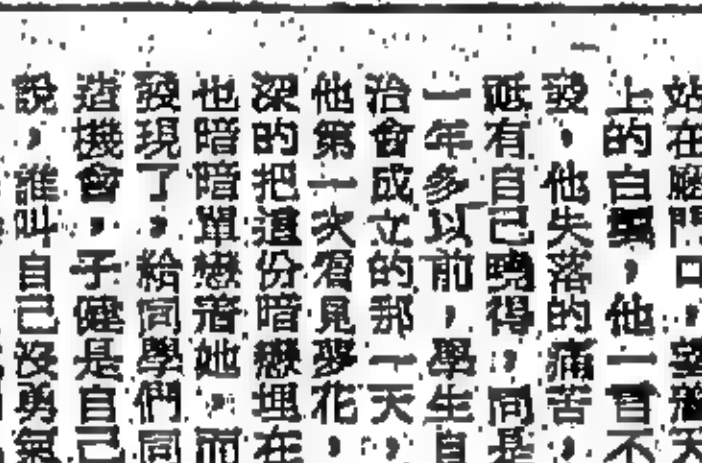 站在廳門口,望
上的白雲,他一直不
發,他失落的痛苦,
砥有自己曉得,同是
一年多以前,學生自
治會成立的那一天,
他第一次看見夢花,
深的把這份暗戀埋在
也暗暗單戀着她,而
發現了,給同學們同
這機會,子健是自己
說,誰叫自己沒勇氣